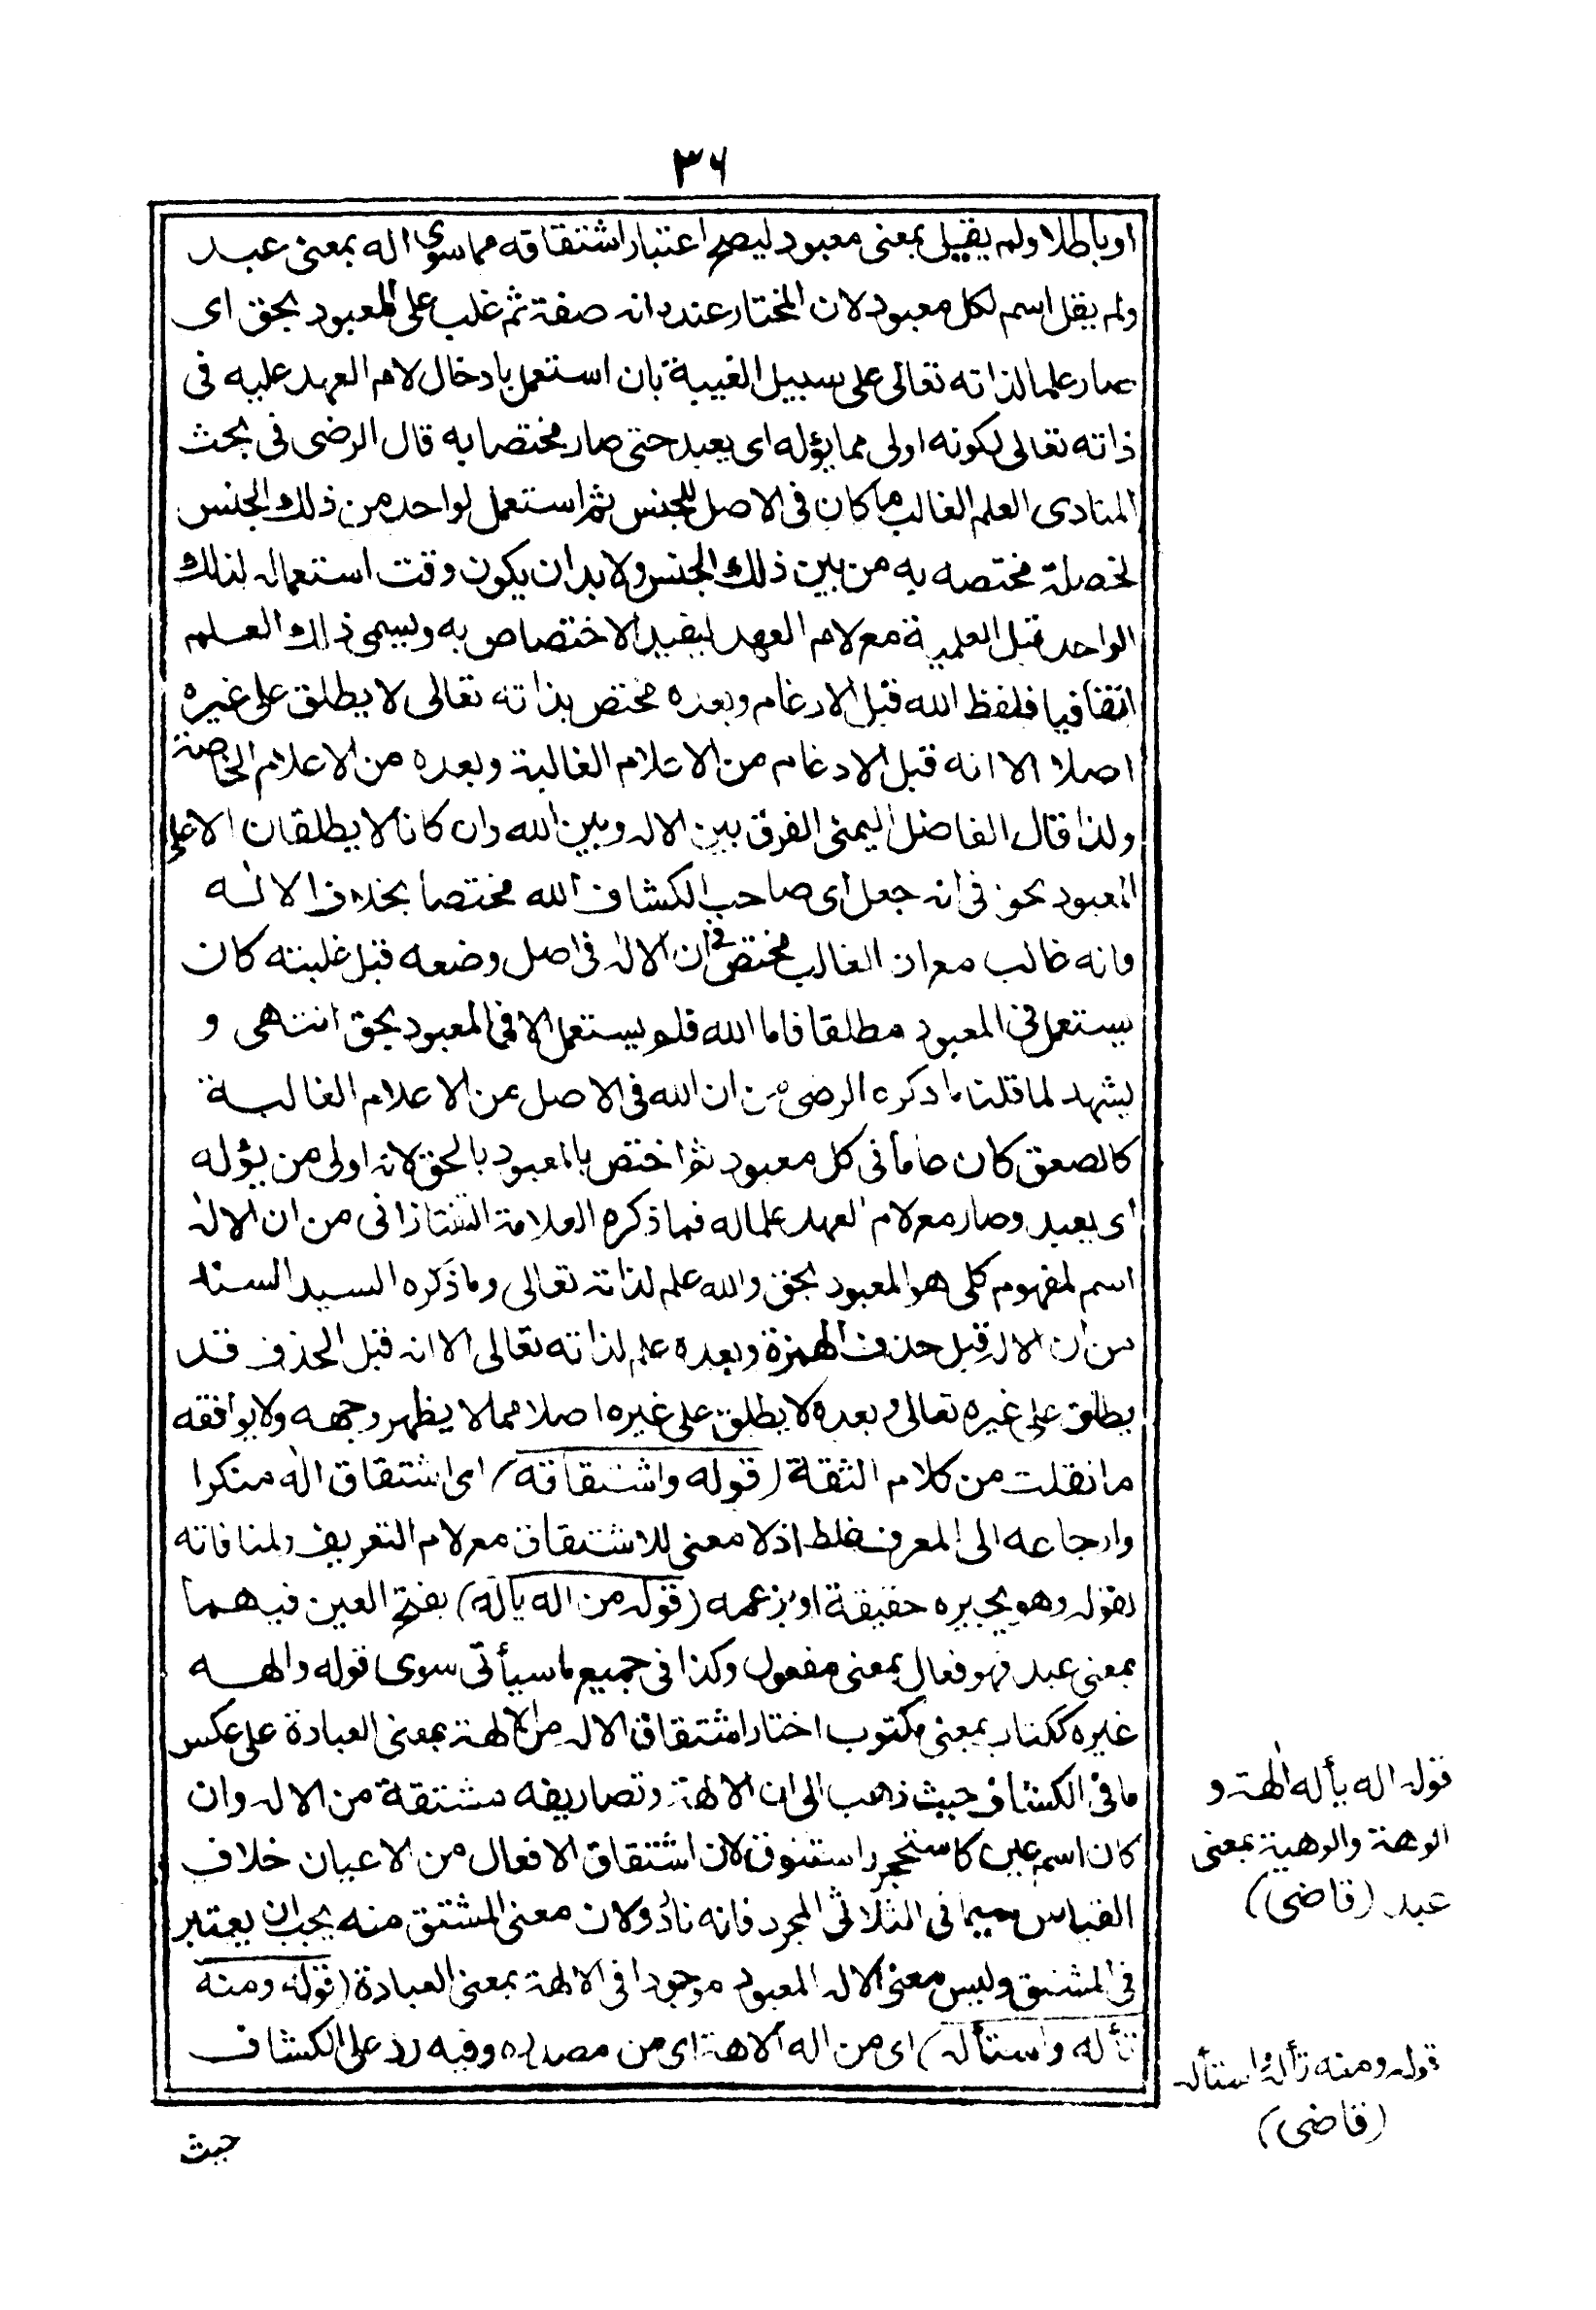 ٣٦
او باطلا ولم يقيل بمعنى معبود ليصح اعتبار اشتقاقه مما سوى اله بمعنى عبد
ولم يقل اسم لكل معبود لان المختار عنده انه صفة ثم غلب على المعبود بحق اى
صار علما لذاته تعالى على سبيل الغيبة بان استعمل بادخال لام العهد عليه فى
ذاته تعالى لكونه اولى مما يؤله اى يعبد حتى صار مختصا به قال الرضى فى بحث
المنادى العلم الغالب ما كان فى الاصل للجنس ثم استعمل لواحد من ذلك الجنس
لخصلة مختصه به من بين ذلك الجنس ولا بد ان يكون وقت استعماله لذلك
الواحد قبل العلمية مع لام العهد ليفيد الاختصاص به ويسمى ذلك العلم
اتفاقيا فلفظ الله قبل الادغام وبعده مختص بذاته تعالى لا يطلق على غيره
اصلا الا انه قبل الادغام من الاعلام الغالبة وبعده من الاعلام الخاصة
ولذا قال الفاضل اليمنى الفرق بين الاله وبين الله وان كانا لا يطلقان الا على
المعبود بحق فى انه جعل اى صاحب الكشاف الله مختصا بخلاف الاله
فانه غالب مع ان الغالب مختص فى ان الاله فى اصل وضعه قبل غلبته كان
يستعمل فى المعبود مطلقا فاما الله فلم يستعمل الا فى المعبود بحق انتهى و
يشهد لما قلنا ما ذكره الرضى من ان الله فى الاصل من الاعلام الغالبة
كالصعق كان عاما فى كل معبود ثم اختص بالمعبود بالحق لانه اولى من يؤله
اى يعبد وصار مع لام العهد علما له فما ذكره العلامة التفتازانى من ان الاله
اسم لمفهوم كلى هو المعبود بحق والله علم لذاته تعالى وما ذكره السيد السند
من ان الاله قبل حذف الهمزة وبعده علم لذاته تعالى الا انه قبل الحذف قد
يطلق على غيره تعالى وبعده لا يطلق على غيره اصلا مما لا يظهر وجهه ولا يوافقه
ما نقلت من كلام الثقلة (قوله واشتقاقه) اى اشتقاق اله منكرا
وارجاعه الى المعرف غلط اذ لا معنى للاشتقاق مع لام التعريف ولمنافاته
لقوله وهو يجيره حقيقة او بزعمه (قوله من اله يأله) بفتح العين فيهما
بمعنى عبد فهو فعال بمعنى مفعول وكذا فى جميع ما سيأتى سوى قوله والهه
غيره ككتاب بمعنى مكتوب اختار اشتقاق الاله من الالهة بمعنى العبادة على عكس
ما فى الكشاف حيث ذهب الى ان الالهة وتصاريفه مشتقة من الاله وان
كان اسم عين كاستحجر واستنوق لان اشتقاق الافعال من الاعيان خلاف
القياس سيما فى الثلاثى المجرد فانه نادر ولان معنى المشتق منه يجب ان يعتبر
فى المشتق وليس معنى الاله المعبود موجودا فى الالهة بمعنى العبادة (قوله ومنه
تأله واستأله) اى من اله الاهة اى من مصدره وفيه رد على الكشاف
حيث
قوله اله يأله الهة و
الوهة والوهية بمعنى
عبد (قاضى)
قوله ومنه تأله واستأله
(قاضى)